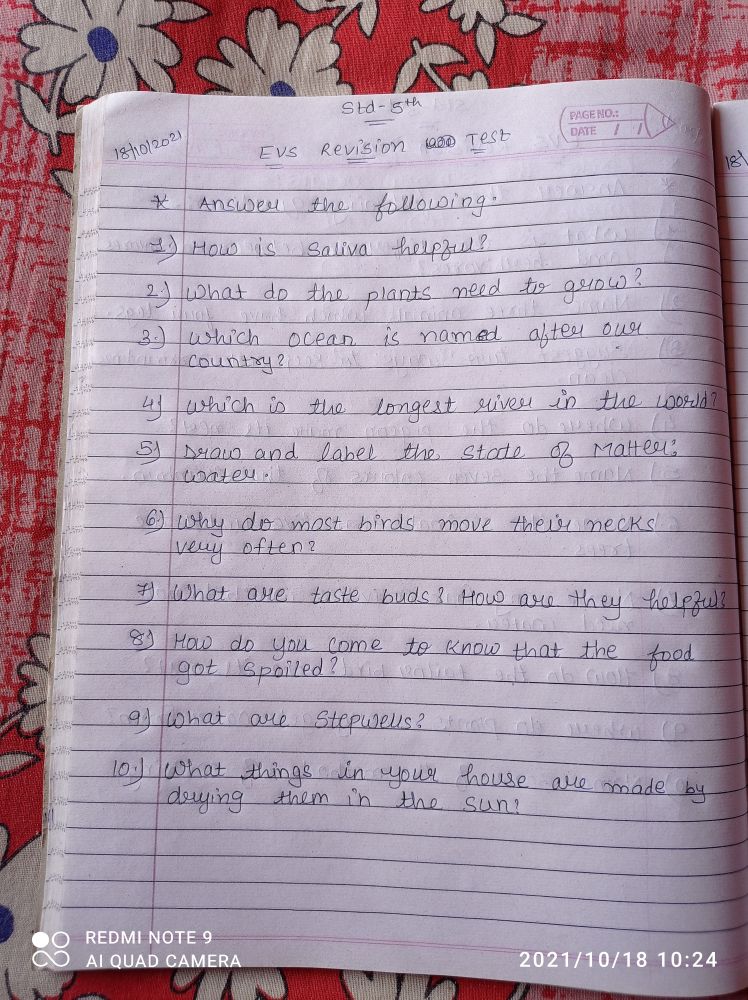 Std - 5th
PAGE NO.:
DATE / /
18/10/2021
EVS Revision Test
* Answer the following.
1.) How is Saliva helpful?
2.) What do the plants need to grow?
3.) which ocean is named after our
country?
4) which is the longest river in the world?
5) Draw and label the State of Matter:
water.
6.) why do most birds move their necks
very often?
7) What are taste buds? How are they helpful?
8) How do you come to know that the food
got spoiled?
9) What are Stepwells?
10.) What things in your house are made by
drying them in the sun?
18/
REDMI NOTE 9
AI QUAD CAMERA
2021/10/18 10:24